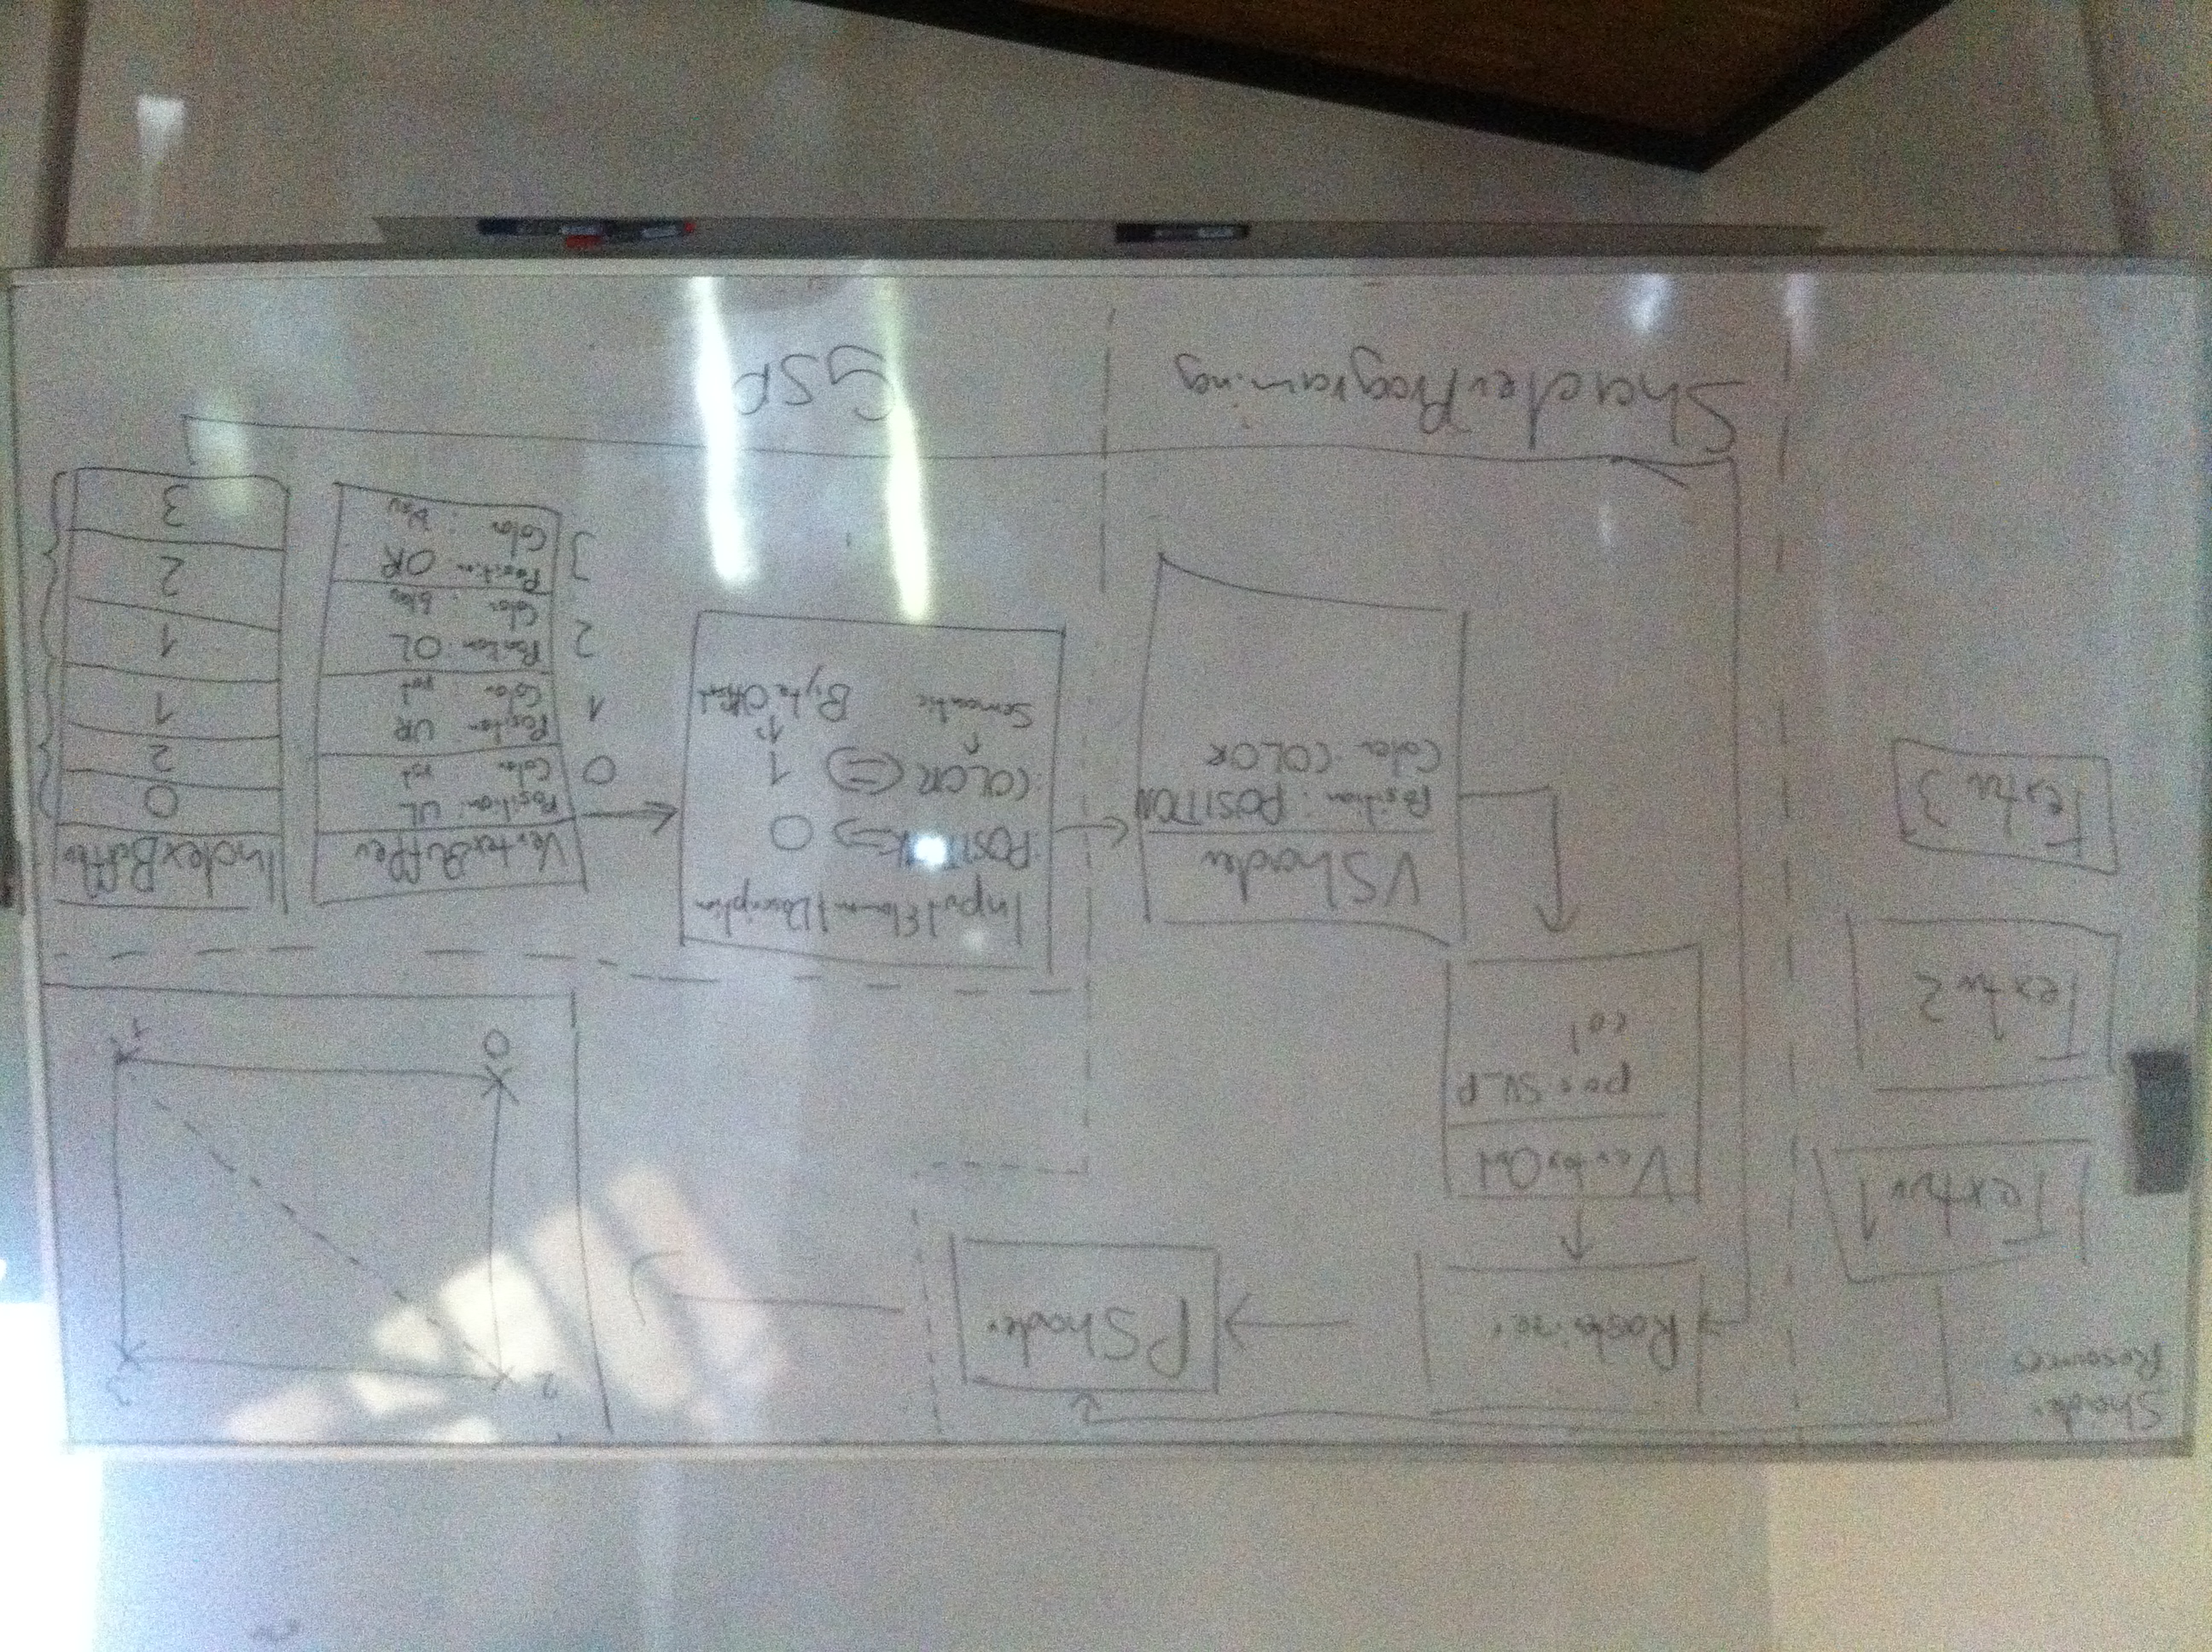 Shader
Resources
Textur 1
Textur 2
Textur 3
Rasterizer
PShader
VertexOut
pos: SV_P
col
VShader
Position : POSITION
Color : COLOR
InputElementDescription
POSITION ⇔ 0
COLOR ⇔ 1
↑
Semantic
Byte Offset
VertexBuffer
0
Position: UL
Color rot
1
Position: UR
Color : rot
2
Position : OL
Color : blau
3
Position: OR
Color : blau
IndexBuffer
0
2
1
1
2
3
2
3
0
1
ShaderPrograming
GSP